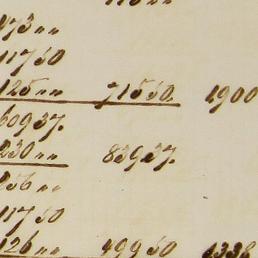 473 " "
11750
125 " " 71550 1900
60937.
230 " " 83937.
256 " "
11750
126 " " 49950